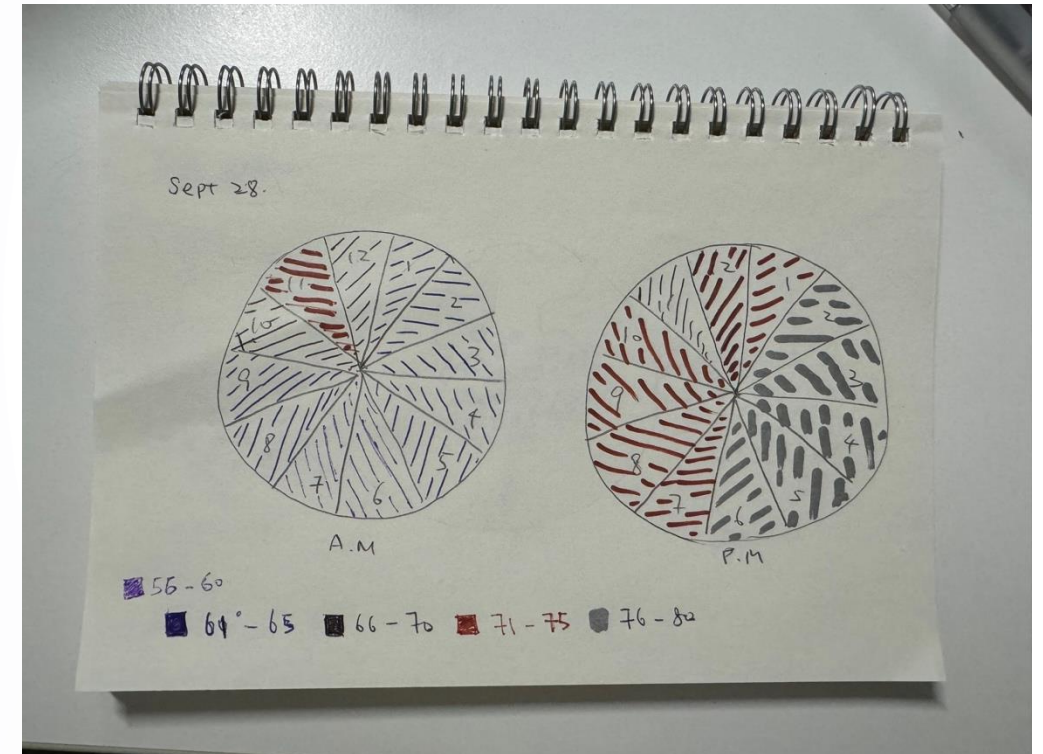 Sept 28.
12
1
2
3
4
5
6
7
8
9
10
11
A.M
12
1
2
3
4
5
6
7
8
9
10
P.M
55-60
61°-65
66-70
71-75
76-80